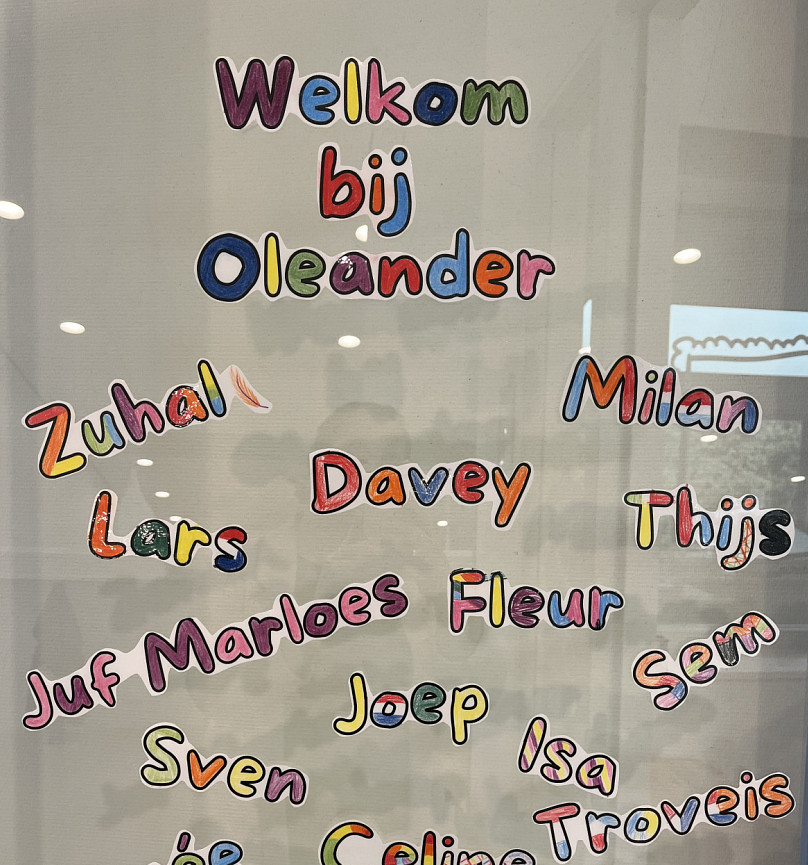 Welkom
bij
Oleander
Zuhal
Milan
Davey
Lars
Thijs
Juf Marloes
Fleur
Sem
Joep
Sven
Isa
Troveis
Celine